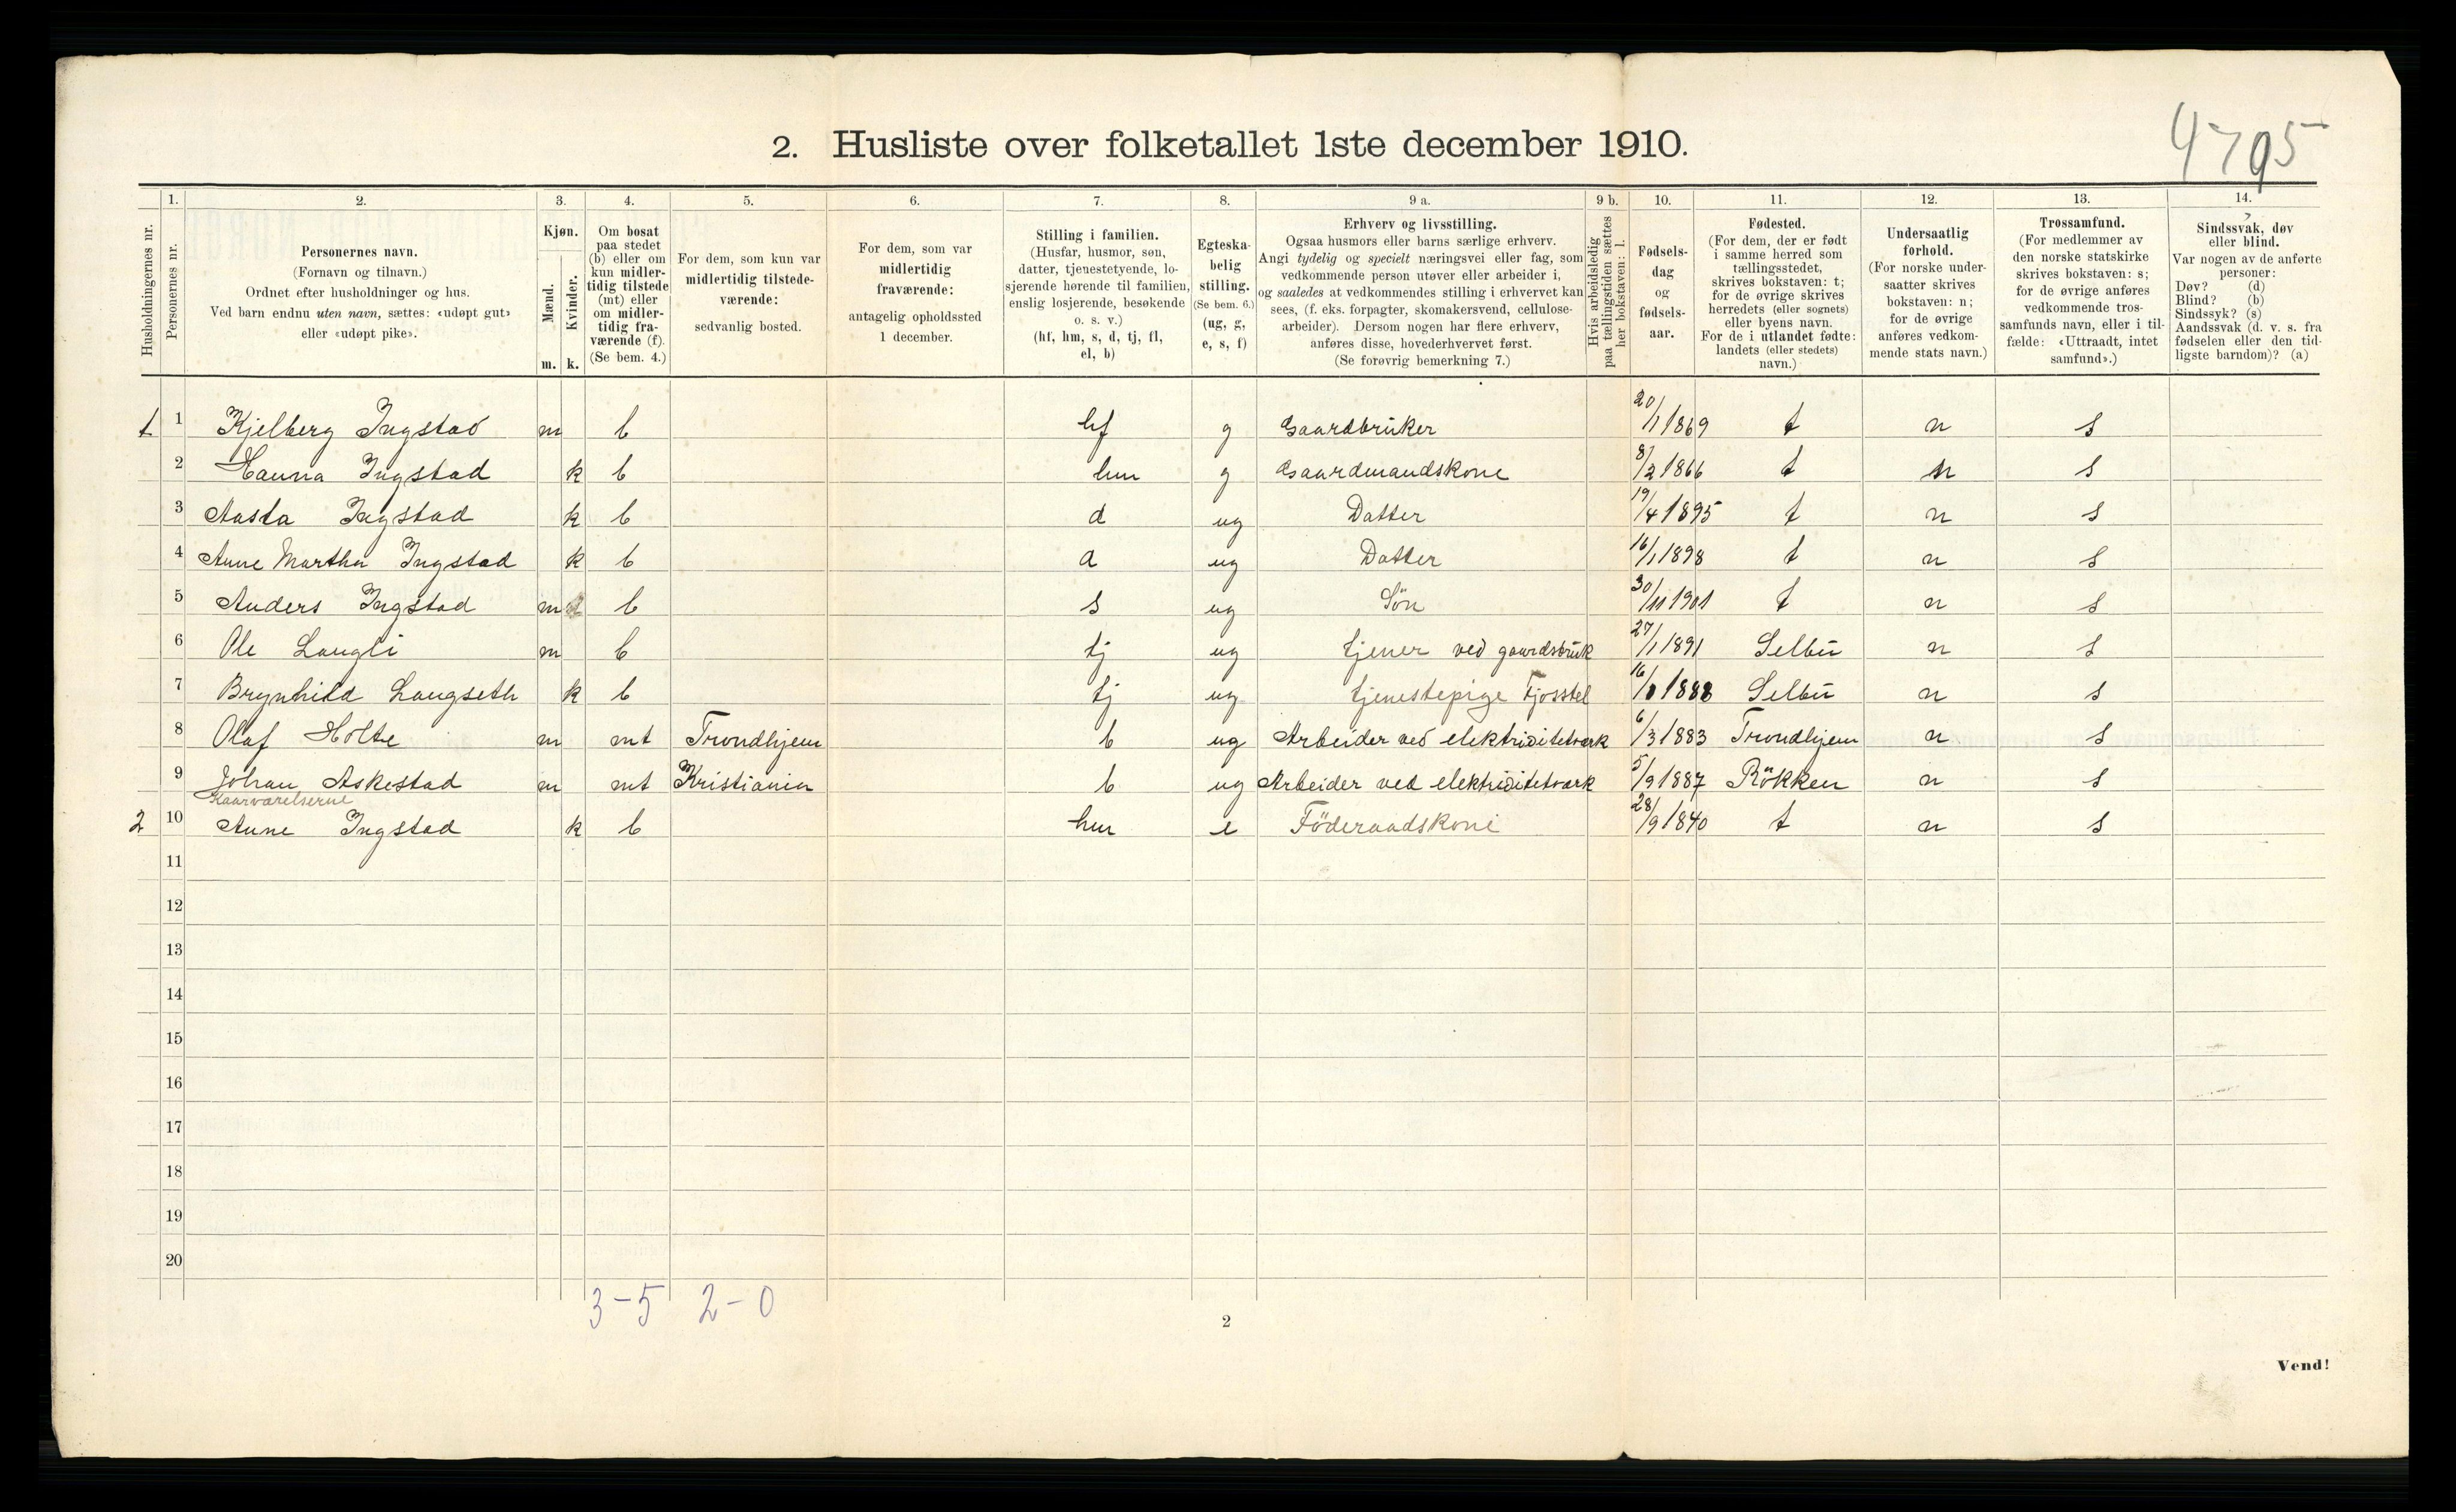 4795
2. Husliste over folketallet 1ste december 1910.
Husholdningernes nr.
1. Personernes nr.
2. Personernes navn.
(Fornavn og tilnavn.)
Ordnet efter husholdninger og hus.
Ved barn endnu uten navn, sættes: «udøpt gut»
eller «udøpt pike».
3. Kjøn.
Mænd. Kvinder.
m. k.
4. Om bosat
paa stedet
(b) eller om
kun midler-
tidig tilstede
(mt) eller
om midler-
tidig fra-
værende (f).
(Se bem. 4.)
5. For dem, som kun var
midlertidig tilstede-
værende:
sedvanlig bosted.
6. For dem, som var
midlertidig
fraværende:
antagelig opholdssted
1 december.
7. Stilling i familien.
(Husfar, husmor, søn,
datter, tjenestetyende, lo-
sjerende hørende til familien,
enslig losjerende, besøkende
o. s. v.)
(hf, hm, s, d, tj, fl,
el, b)
8. Egteska-
belig
stilling.
(Se bem. 6.)
(ug, g,
e, s, f)
9 a. Erhverv og livsstilling.
Ogsaa husmors eller barns særlige erhverv.
Angi tydelig og specielt næringsvei eller fag, som
vedkommende person utøver eller arbeider i,
og saaledes at vedkommendes stilling i erhvervet kan
sees, (f. eks. forpagter, skomakersvend, cellulose-
arbeider). Dersom nogen har flere erhverv,
anføres disse, hovederhvervet først.
(Se forøvrig bemerkning 7.)
9 b. Hvis arbeidsledig
paa tællingstiden sættes
her bokstaven: l.
10. Fødsels-
dag
og
fødsels-
aar.
11. Fødested.
(For dem, der er født
i samme herred som
tællingsstedet,
skrives bokstaven: t;
for de øvrige skrives
herredets (eller sognets)
eller byens navn.
For de i utlandet fødte:
landets (eller stedets)
navn.)
12. Undersaatlig
forhold.
(For norske under-
saatter skrives
bokstaven: n;
for de øvrige
anføres vedkom-
mende stats navn.)
13. Trossamfund.
(For medlemmer av
den norske statskirke
skrives bokstaven: s;
for de øvrige anføres
vedkommende tros-
samfunds navn, eller i til-
fælde: «Uttraadt, intet
samfund».)
14. Sindssvak, døv
eller blind.
Var nogen av de anførte
personer:
Døv? (d)
Blind? (b)
Sindssyk? (s)
Aandssvak (d. v. s. fra
fødselen eller den tid-
ligste barndom)? (a)
1 1 Kjelberg Ingstad m b hf g Gaardbruker 20/1 1869 t n s
2 Hanna Ingstad k b hm g Gaardmandskone 8/2 1866 t n s
3 Aasta Ingstad k b d ug Datter 19/4 1895 t n s
4 Anne Martha Ingstad k b d ug Datter 16/1 1898 t n s
5 Anders Ingstad m b s ug Sön 30/11 1901 t n s
6 Ole Langli m b tj ug tjener ved gaardsbruk 27/1 1891 Selbu n s
7 Brynhild Langseth k b tj ug tjenestepige Fjosstel 16/ 1888 Selbu n s
8 Olaf Holte m mt Trondhjem b ug Arbeider ved elektrisitetverk 6/3 1883 Trondhjem n s
9 Johan Askestad m mt Kristiania b ug Arbeider ved elektrisitetverk 5/9 1887 Rökken n s
Kaarværelserne
2 10 Anne Ingstad k b hm e Föderaadskone 28/9 1840 t n s
11
12
13
14
15
16
17
18
19
20
3-5 2-0
2
Vend!